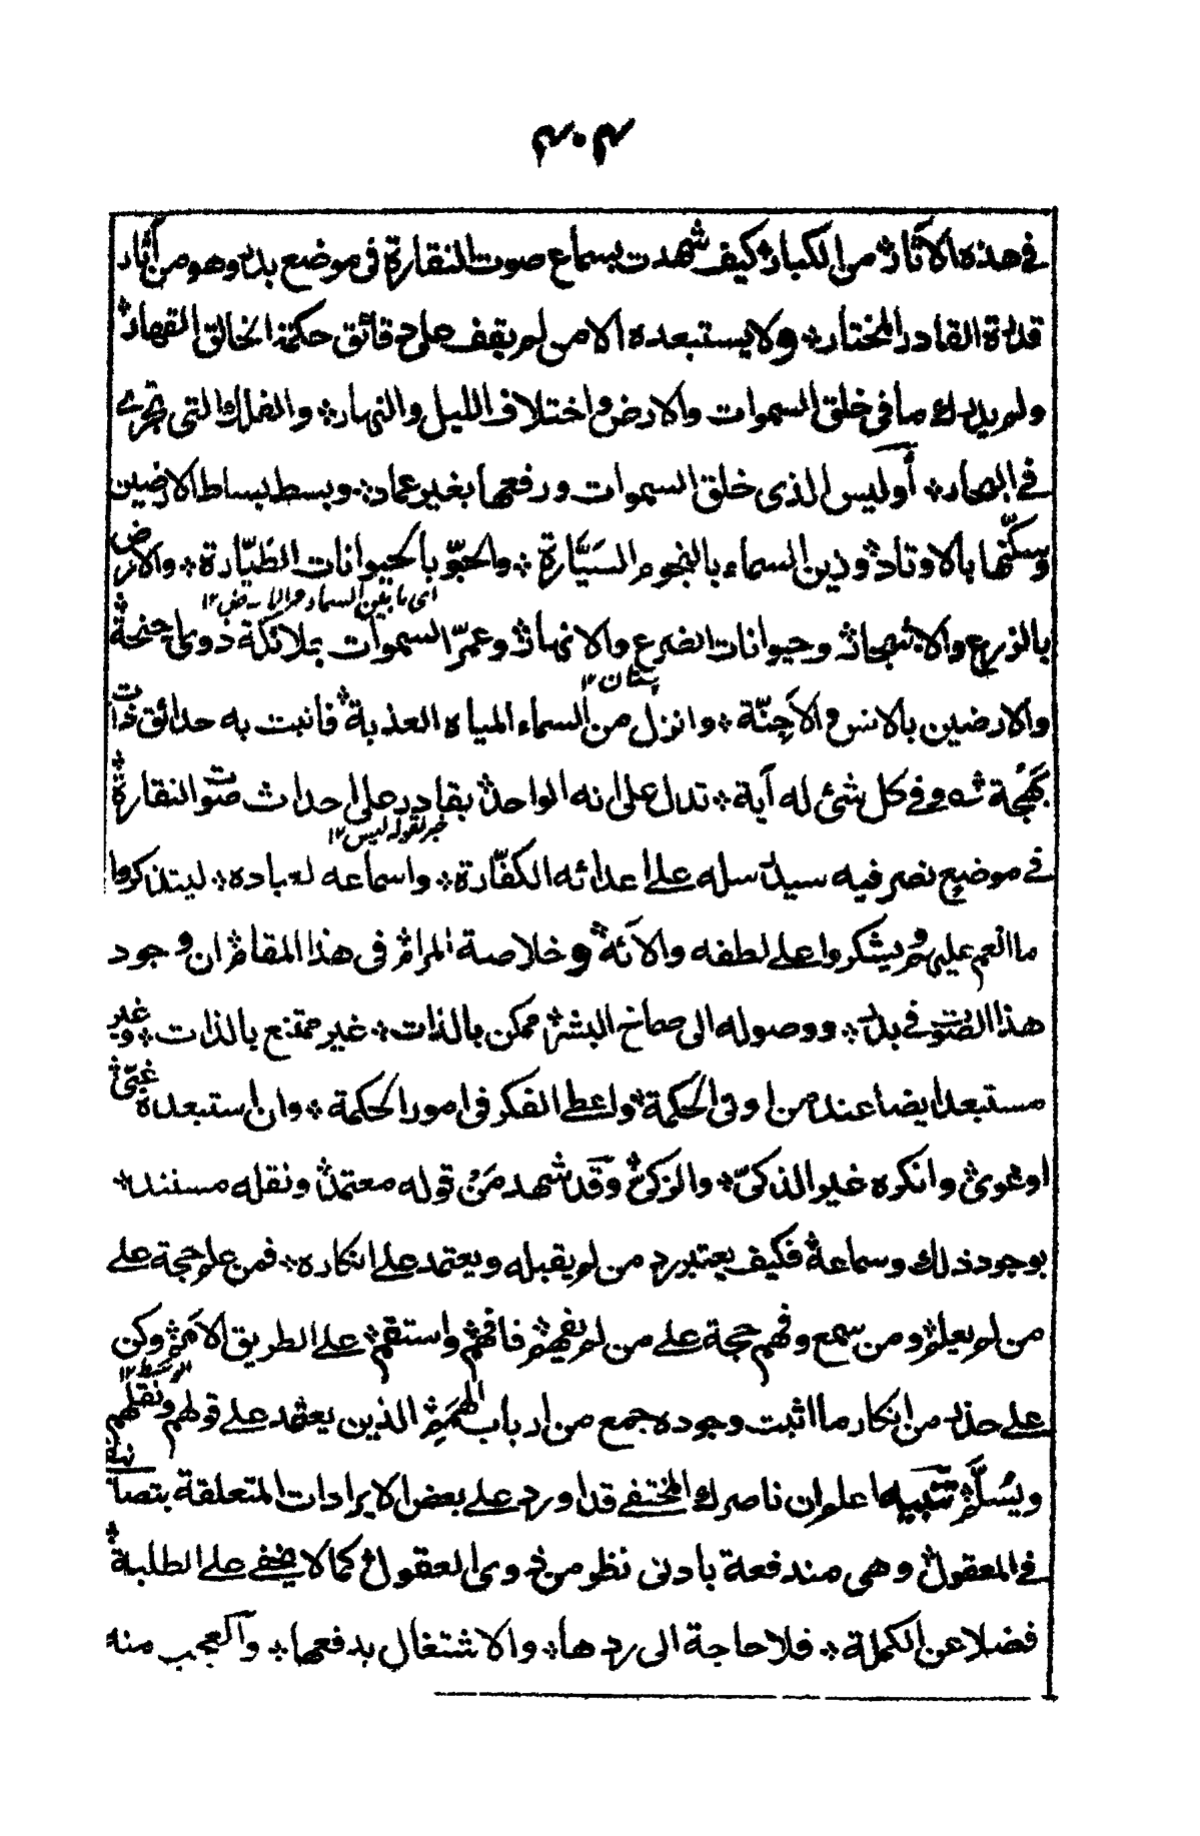 ٣٠٣
في هذه الآثار٭ من الكبار٭ كيف شهدت بسماع صوت النقارة في موضع بدر وهو من آثار
قدرة القادر المختار٭ ولا يستبعده الا من لم يقف على دقائق حكمة الخالق القهار٭
ولم يدرك ما في خلق السموات والارض واختلاف الليل والنهار٭ والفلك التي تجرے
في البحار٭ أوليس الذى خلق السموات ورفعها بغير عماد٭ وبسط بساط الارضين
وسكّنها بالاوتاد٭ وزين السماء بالنجوم السَيَّارة٭ والجوّ بالحيوانات الطَّيّارة٭ والارض
اى ما بين السماء والارض ١٢
بالزرع والاشجار٭ وحيوانات الضرع والانهار٭ وعمّر السموات بملائكة ذوى اجنحة٭
پستان ١٢
والارضين بالانس والأجِنّة٭ وانزل من السماء المياه العذبة٭ فانبت به حدائق ذات
بَهْجة ٭ شه وفي كل شئ له آية٭ تدل على انه الواحد٭ بقادر على احداث صوت النقارة٭
خبر لقوله ليس ١٢
في موضع نصر فيه سيد رسله على اعدائه الكفّارة٭ واسماعه لعباده٭ ليتذكروا
ما انعم عليهم ويشكروا على لطفه وآلائه٭ وخلاصة المرام٭ في هذا المقام٭ ان وجود
هذا الصوت في بدر٭ ووصوله الى صماخ البشر٭ ممكن بالذات٭ غير ممتنع بالذات٭ وغير
مستبعد ايضا عند من اوتي الحكمة٭ واعطى الفكر في امور الحكمة٭ وان استبعده غبىّ٭
او غوى٭ وانكره غير الذكىّ٭ والزكى٭ وقد شهد مَنْ قوله معتمد٭ ونقله مستند٭
بوجود ذلك وسماعه٭ فكيف يعتبر رد من لم يقبله ويعتمد على انكاره٭ فمن علم حجة على
من لم يعلم٭ ومن سمع وفهم حجة على من لم يفهم٭ فافهم٭ واستقم٭ على الطريق الامم٭ وكن
الوسط ١٢
على حذر من انكار ما اثبت وجوده جمع من ارباب الهمم٭ الذين يعتمد على قولهم ونقلهم
ويُسلَّم٭ تنبيه اعلم ان ناصرك المختفى قد اورد على بعض الايرادات المتعلقة بتصانيفه
في المعقول٭ وهى مندفعة بادنى نظر من ذوى العقول٭ كما لا يخفى على الطلبة٭
فضلا عن الكملة٭ فلا حاجة الى ردها٭ والاشتغال بدفعها٭ والعجب منه